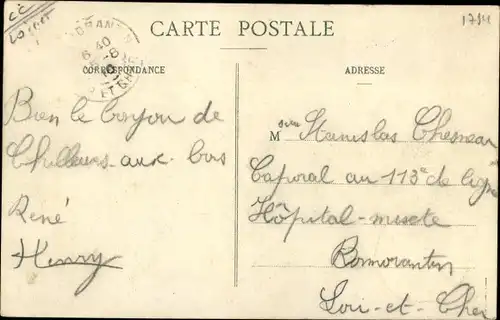 CARTE POSTALE
CORRESPONDANCE
ADRESSE
1714
6 40
Bien le bonjour de
Chilleurs-aux-bois
René
Henry
Msieur Stanislas Chesneau
Caporal au 113e de ligne
Hôpital-mixte
Romorantin
Loir-et-Cher